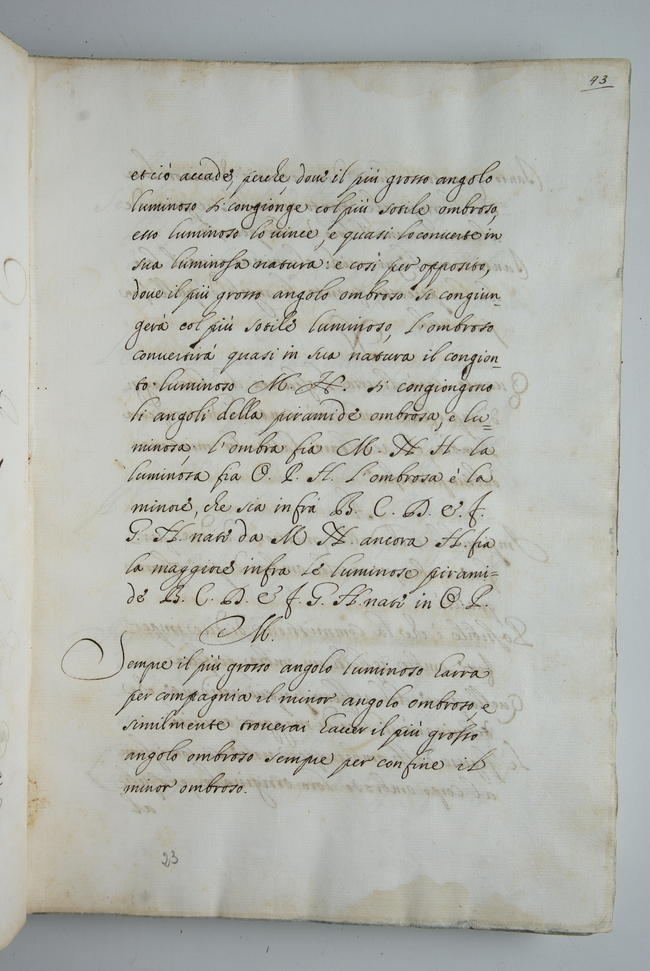 93
et ciò accade perche dove il più grosso angolo
luminoso si congionge col più sotile ombroso,
esso luminoso lo vince, e quasi lo converte in
sua luminosa natura: e così per opposito,
dove il più grosso angolo ombroso si congiun=
gerà col più sotile luminoso, l'ombroso
convertirà quasi in sua natura il congion=
to luminoso M. N. si congiongono
li angoli della piramide ombrosa, e lu=
minosa l'ombra fia M. N H. la
luminosa fia O. P. H. l'ombrosa è la
minore, che sia infra B. C. D. E. F.
G. H. nate da M N. ancora H. fia
la maggiore infra le luminose pirami=
de B. C. D. E F. G. H. nate in O. P.
M.
Sempre il più grosso angolo luminoso harra
per compagnia il minor angolo ombroso, e
similmente troverai haver il più grosso
angolo ombroso sempre per confine il
minor ombroso.
23